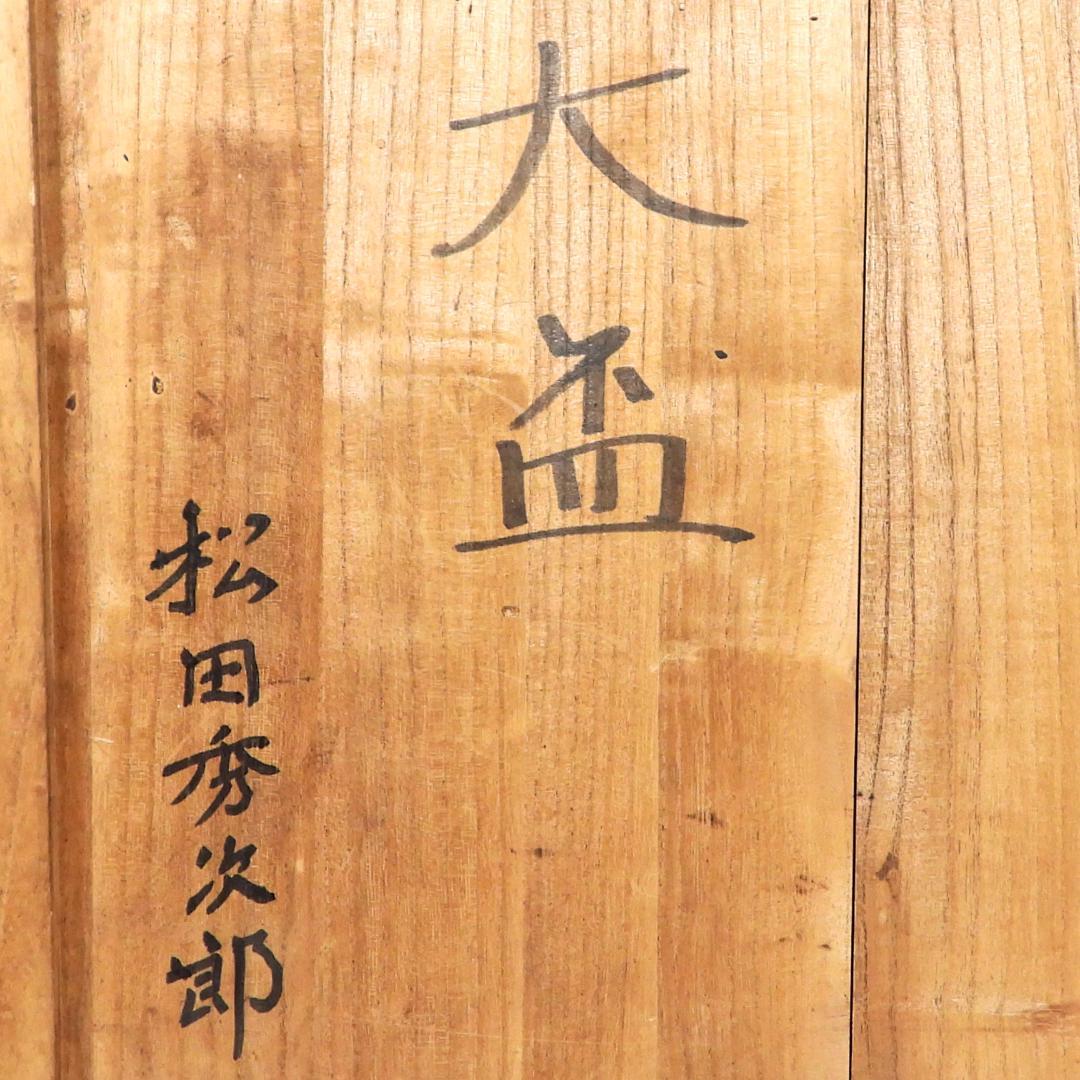 大盃
松田秀次郎